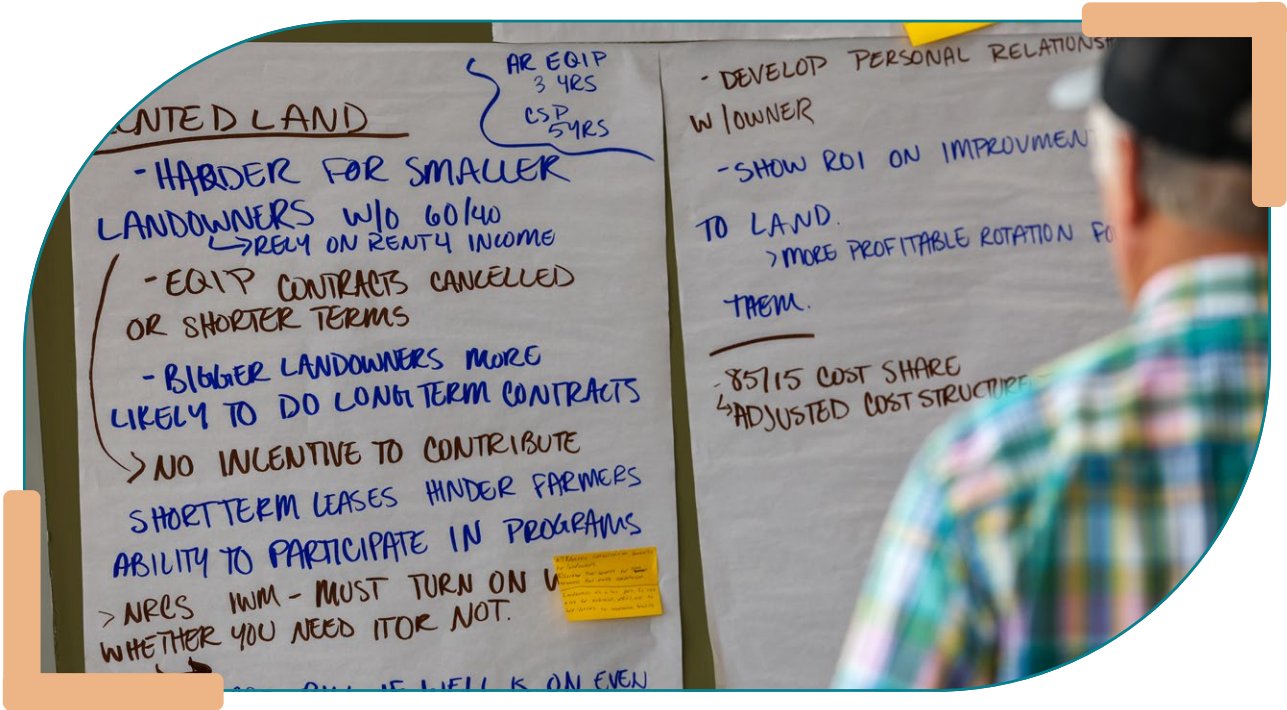 AR EQIP
3 YRS
CSP
5YRS
RENTED LAND
- HARDER FOR SMALLER
LANDOWNERS W/O 60/40
↳RELY ON RENT4 INCOME
- EQIP CONTRACTS CANCELLED
OR SHORTER TERMS
- BIGGER LANDOWNERS MORE
LIKELY TO DO LONG TERM CONTRACTS
> NO INCENTIVE TO CONTRIBUTE
SHORT TERM LEASES HINDER FARMERS
ABILITY TO PARTICIPATE IN PROGRAMS
> NRCS IWM - MUST TURN ON
WHETHER YOU NEED IT OR NOT.
IF WELL IS ON EVEN
- DEVELOP PERSONAL RELATIONSH
W/OWNER
- SHOW ROI ON IMPROVMENT
TO LAND.
> MORE PROFITABLE ROTATION FO
THEM.
- 85/15 COST SHARE
↳ADJUSTED COST STRUCTURE